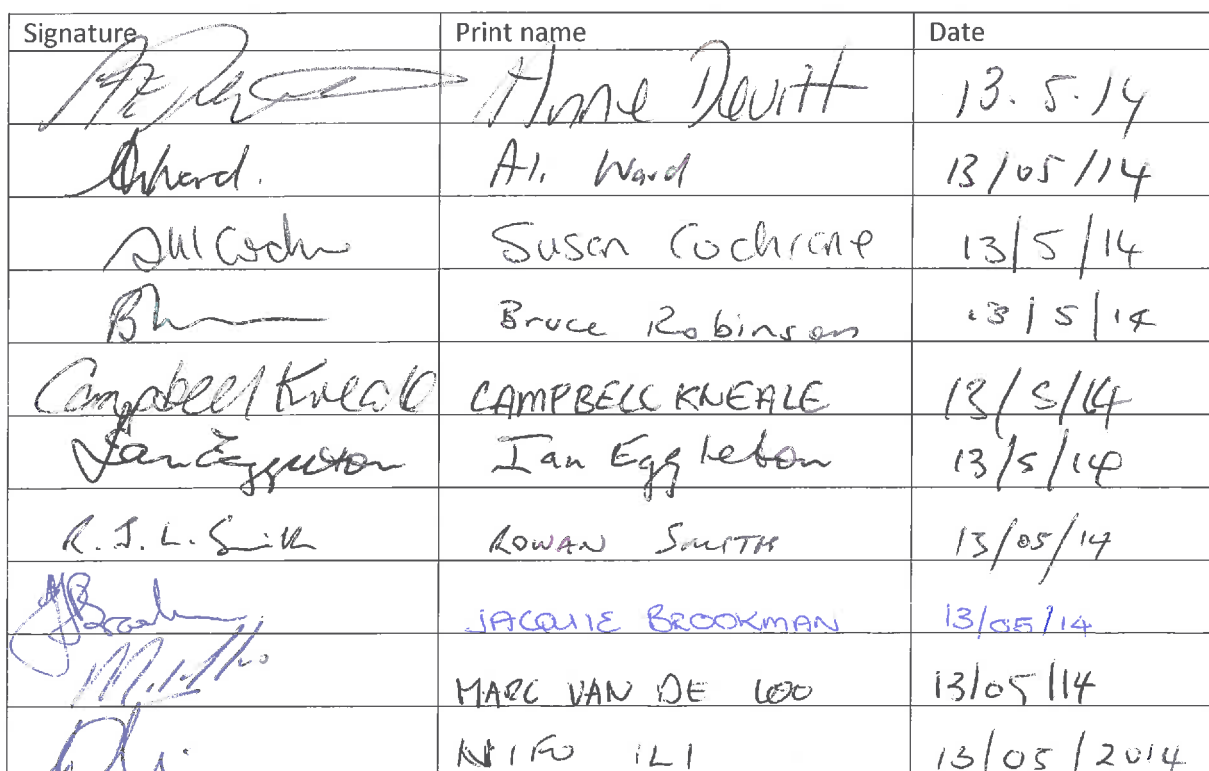 Signature Print name Date
Anne Devitt 13.5.14
Ali Ward 13/05/14
Susan Cochrane 13/5/14
Bruce Robinson 13/5/14
Campbell Kneale CAMPBELL KNEALE 13/5/14
Ian Eggleton Ian Eggleton 13/5/14
R.J.L. Smith ROWAN SMITH 13/05/14
JBrookman JACQUIE BROOKMAN 13/05/14
MARC VAN DE LOO 13/05/14
NIFO ILI 13/05/2014